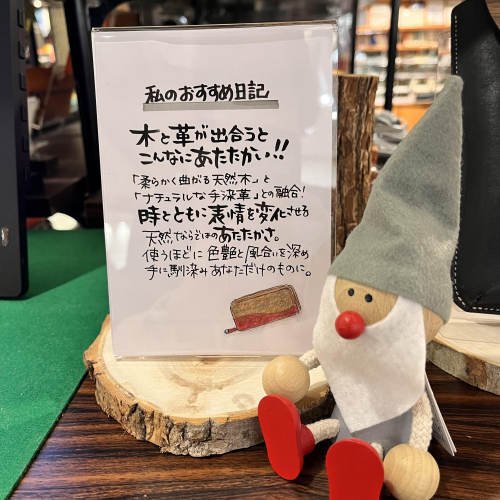 私のおすすめ日記
木と革が出合うと
こんなにあたたかい!!
「柔らかく曲がる天然木」と
「ナチュラルな手染革」との融合!
時とともに表情を変化させる
天然ならではのあたたかさ。
使うほどに色艶と風合いを深め
手に馴染みあなただけのものに。